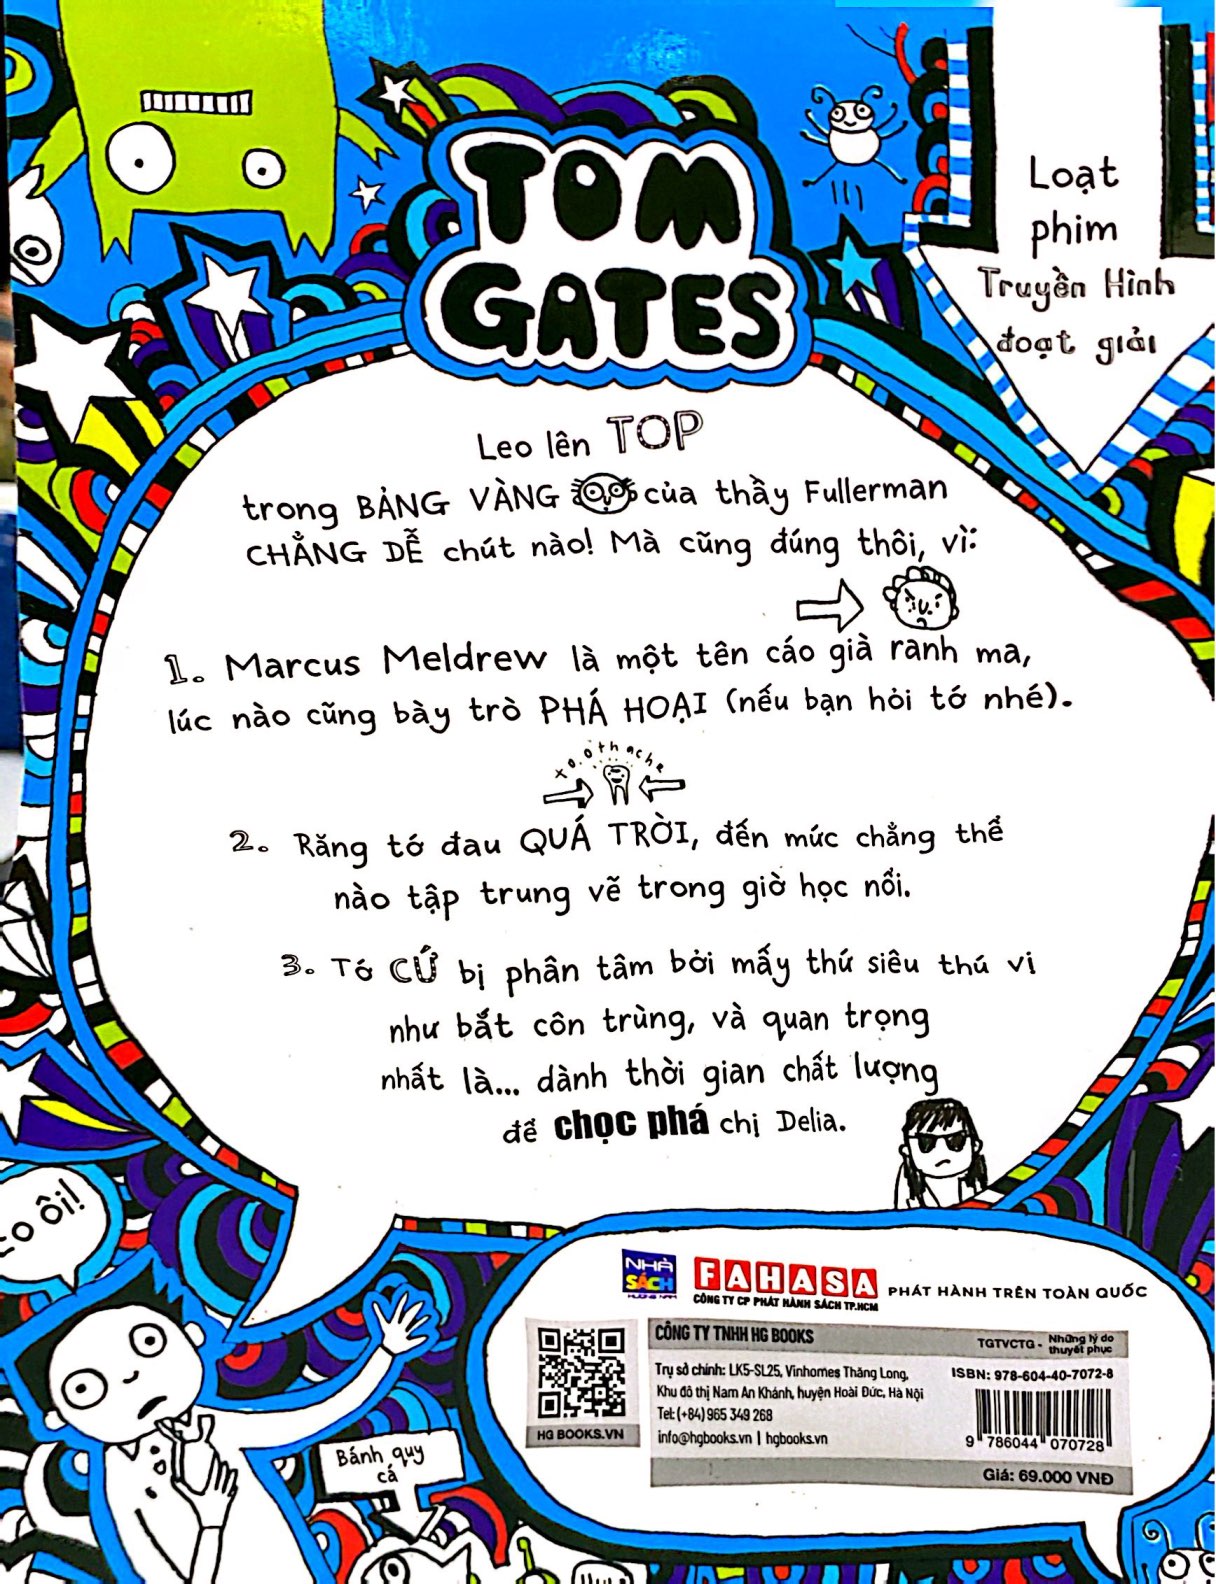 TOM
GATES
Loạt
phim
Truyền Hình
đoạt giải
Leo lên TOP
trong BẢNG VÀNG của thầy Fullerman
CHẲNG DỄ chút nào! Mà cũng đúng thôi, vì:
1. Marcus Meldrew là một tên cáo già ranh ma,
lúc nào cũng bày trò PHÁ HOẠI (nếu bạn hỏi tớ nhé).
toothache
2. Răng tớ đau QUÁ TRỜI, đến mức chẳng thể
nào tập trung vẽ trong giờ học nổi.
3. Tớ CỨ bị phân tâm bởi mấy thứ siêu thú vi
như bắt côn trùng, và quan trọng
nhất là... dành thời gian chất lượng
để chọc phá chị Delia.
ôi!
Bánh quy
cá
NHÀ
SÁCH
FAHASA
CÔNG TY CP PHÁT HÀNH SÁCH TP.HCM
PHÁT HÀNH TRÊN TOÀN QUỐC
HG BOOKS.VN
CÔNG TY TNHH HG BOOKS
TGTVCTG - Những lý do
thuyết phục
Trụ sở chính: LK5-SL25, Vinhomes Thăng Long,
Khu đô thị Nam An Khánh, huyện Hoài Đức, Hà Nội
Tel: (+84) 965 349 268
info@hgbooks.vn | hgbooks.vn
ISBN: 978-604-40-7072-8
9 786044 070728
Giá: 69.000 VNĐ